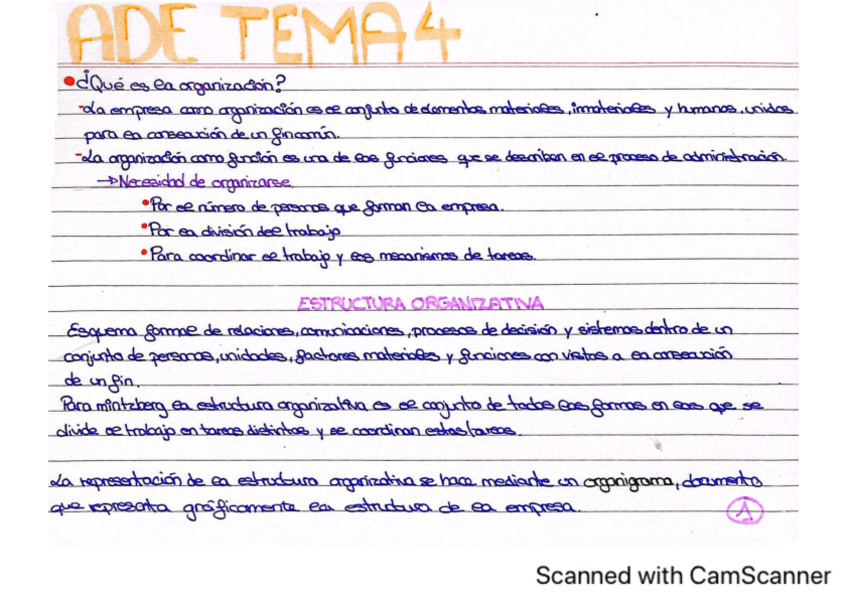 ADE TEMA 4
• ¿Qué es la organización?
- La empresa como organización es el conjunto de elementos materiales, inmateriales y humanos, unidos
para la consecución de un fin común.
- La organización como función es una de las funciones que se describen en el proceso de administración.
→ Necesidad de organizarse.
• Por el número de personas que forman la empresa.
• Por la división del trabajo
• Para coordinar el trabajo y los mecanismos de tareas.
ESTRUCTURA ORGANIZATIVA
Esquema formal de relaciones, comunicaciones, procesos de decisión y sistemas dentro de un
conjunto de personas, unidades, factores materiales y funciones con vistas a la consecución
de un fin.
Para mintzberg la estructura organizativa es el conjunto de todas las formas en las que se
divide el trabajo en tareas distintas y se coordinan estas tareas.
La representación de la estructura organizativa se hace mediante un organigrama, documento
que representa gráficamente la estructura de la empresa.
1
Scanned with CamScanner